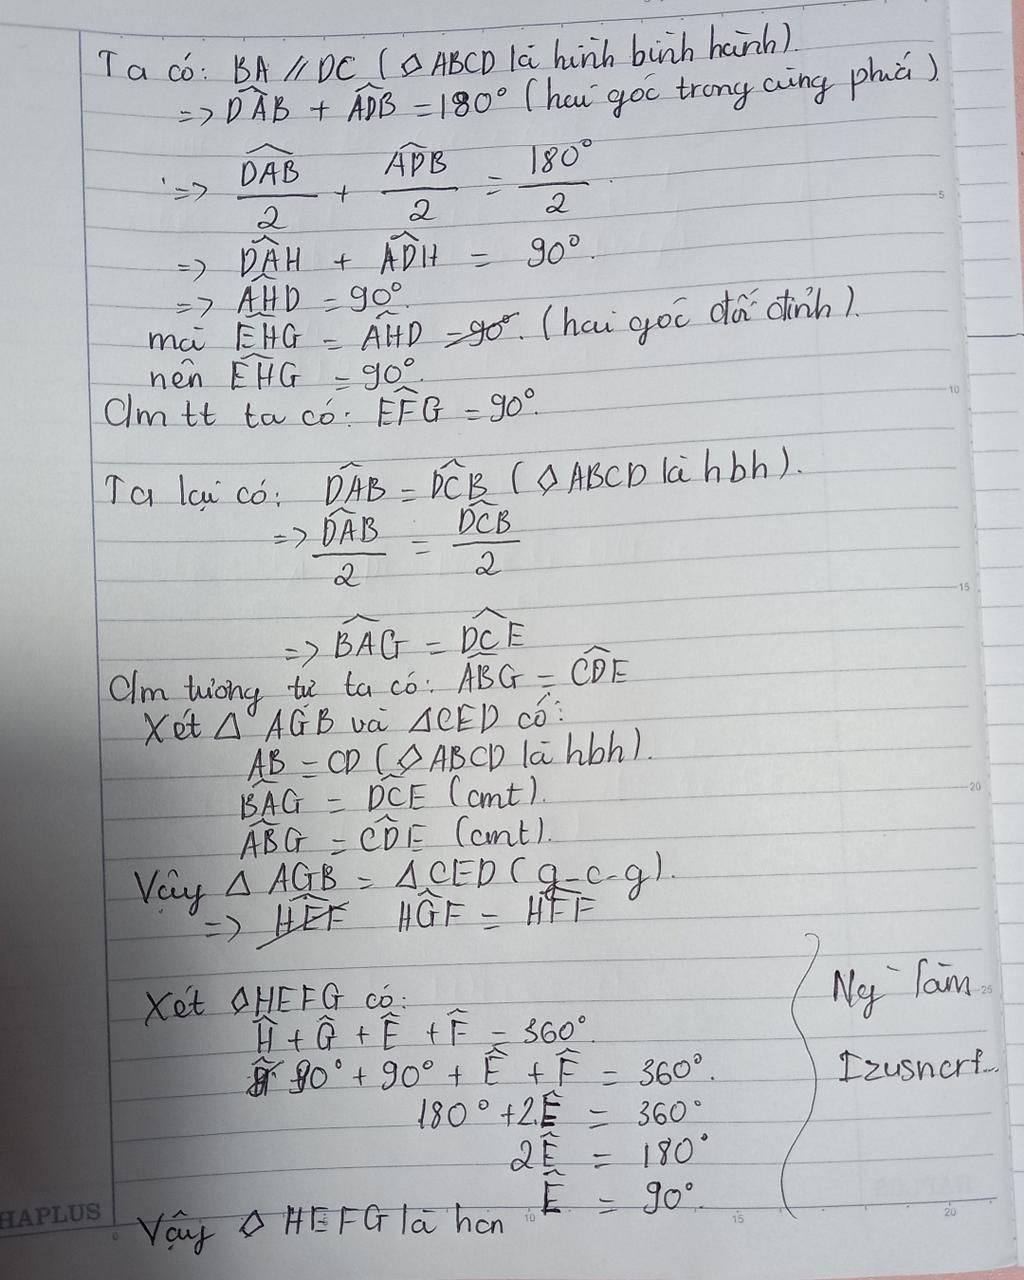 Ta có: BA // DC (◊ ABCD là hình bình hành).
=> D̂AB + ÂDB = 180° (hai góc trong cùng phía)
=> D̂AB/2 + ÂDB/2 = 180°/2
=> DÂH + AD̂H = 90°.
=> AĤD = 90°.
mà EĤG = AĤD = 90°. (hai góc đối đỉnh).
nên EĤG = 90°.
Cm tt ta có: EF̂G = 90°.
Ta lại có: DÂB = DĈB (◊ ABCD là hbh).
=> DÂB/2 = DĈB/2
=> BÂG = DĈE
Cm tương tự ta có: AB̂G = CD̂E
Xét Δ AGB và ΔCED có:
AB = CD (◊ ABCD là hbh).
BÂG = DĈE (cmt).
AB̂G = CD̂E (cmt).
Vậy Δ AGB = ΔCED (g-c-g).
=> HÊF HĜF = HÊF
Xét ◊HEFG có:
Ĥ + Ĝ + Ê + F̂ = 360°.
90° + 90° + Ê + F̂ = 360°.
180° + 2.Ê = 360°
2Ê = 180°
Ê = 90°.
Vậy ◊ HEFG là hcn
Ng làm
Izusncrf...
HAPLUS
5
10
15
20
25
10
15
20